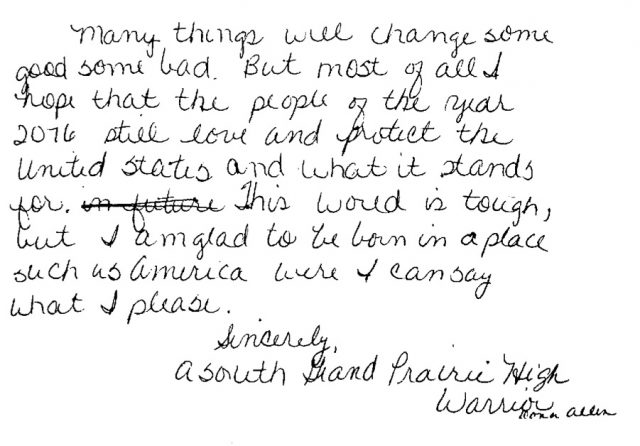 Many things will change some
good some bad. But most of all I
hope that the people of the year
2076 still love and protect the
United States and what it stands
for. in future This world is tough,
but I am glad to be born in a place
such as America were I can say
what I please.
Sincerely,
A South Grand Prairie High
Warrior
Allen